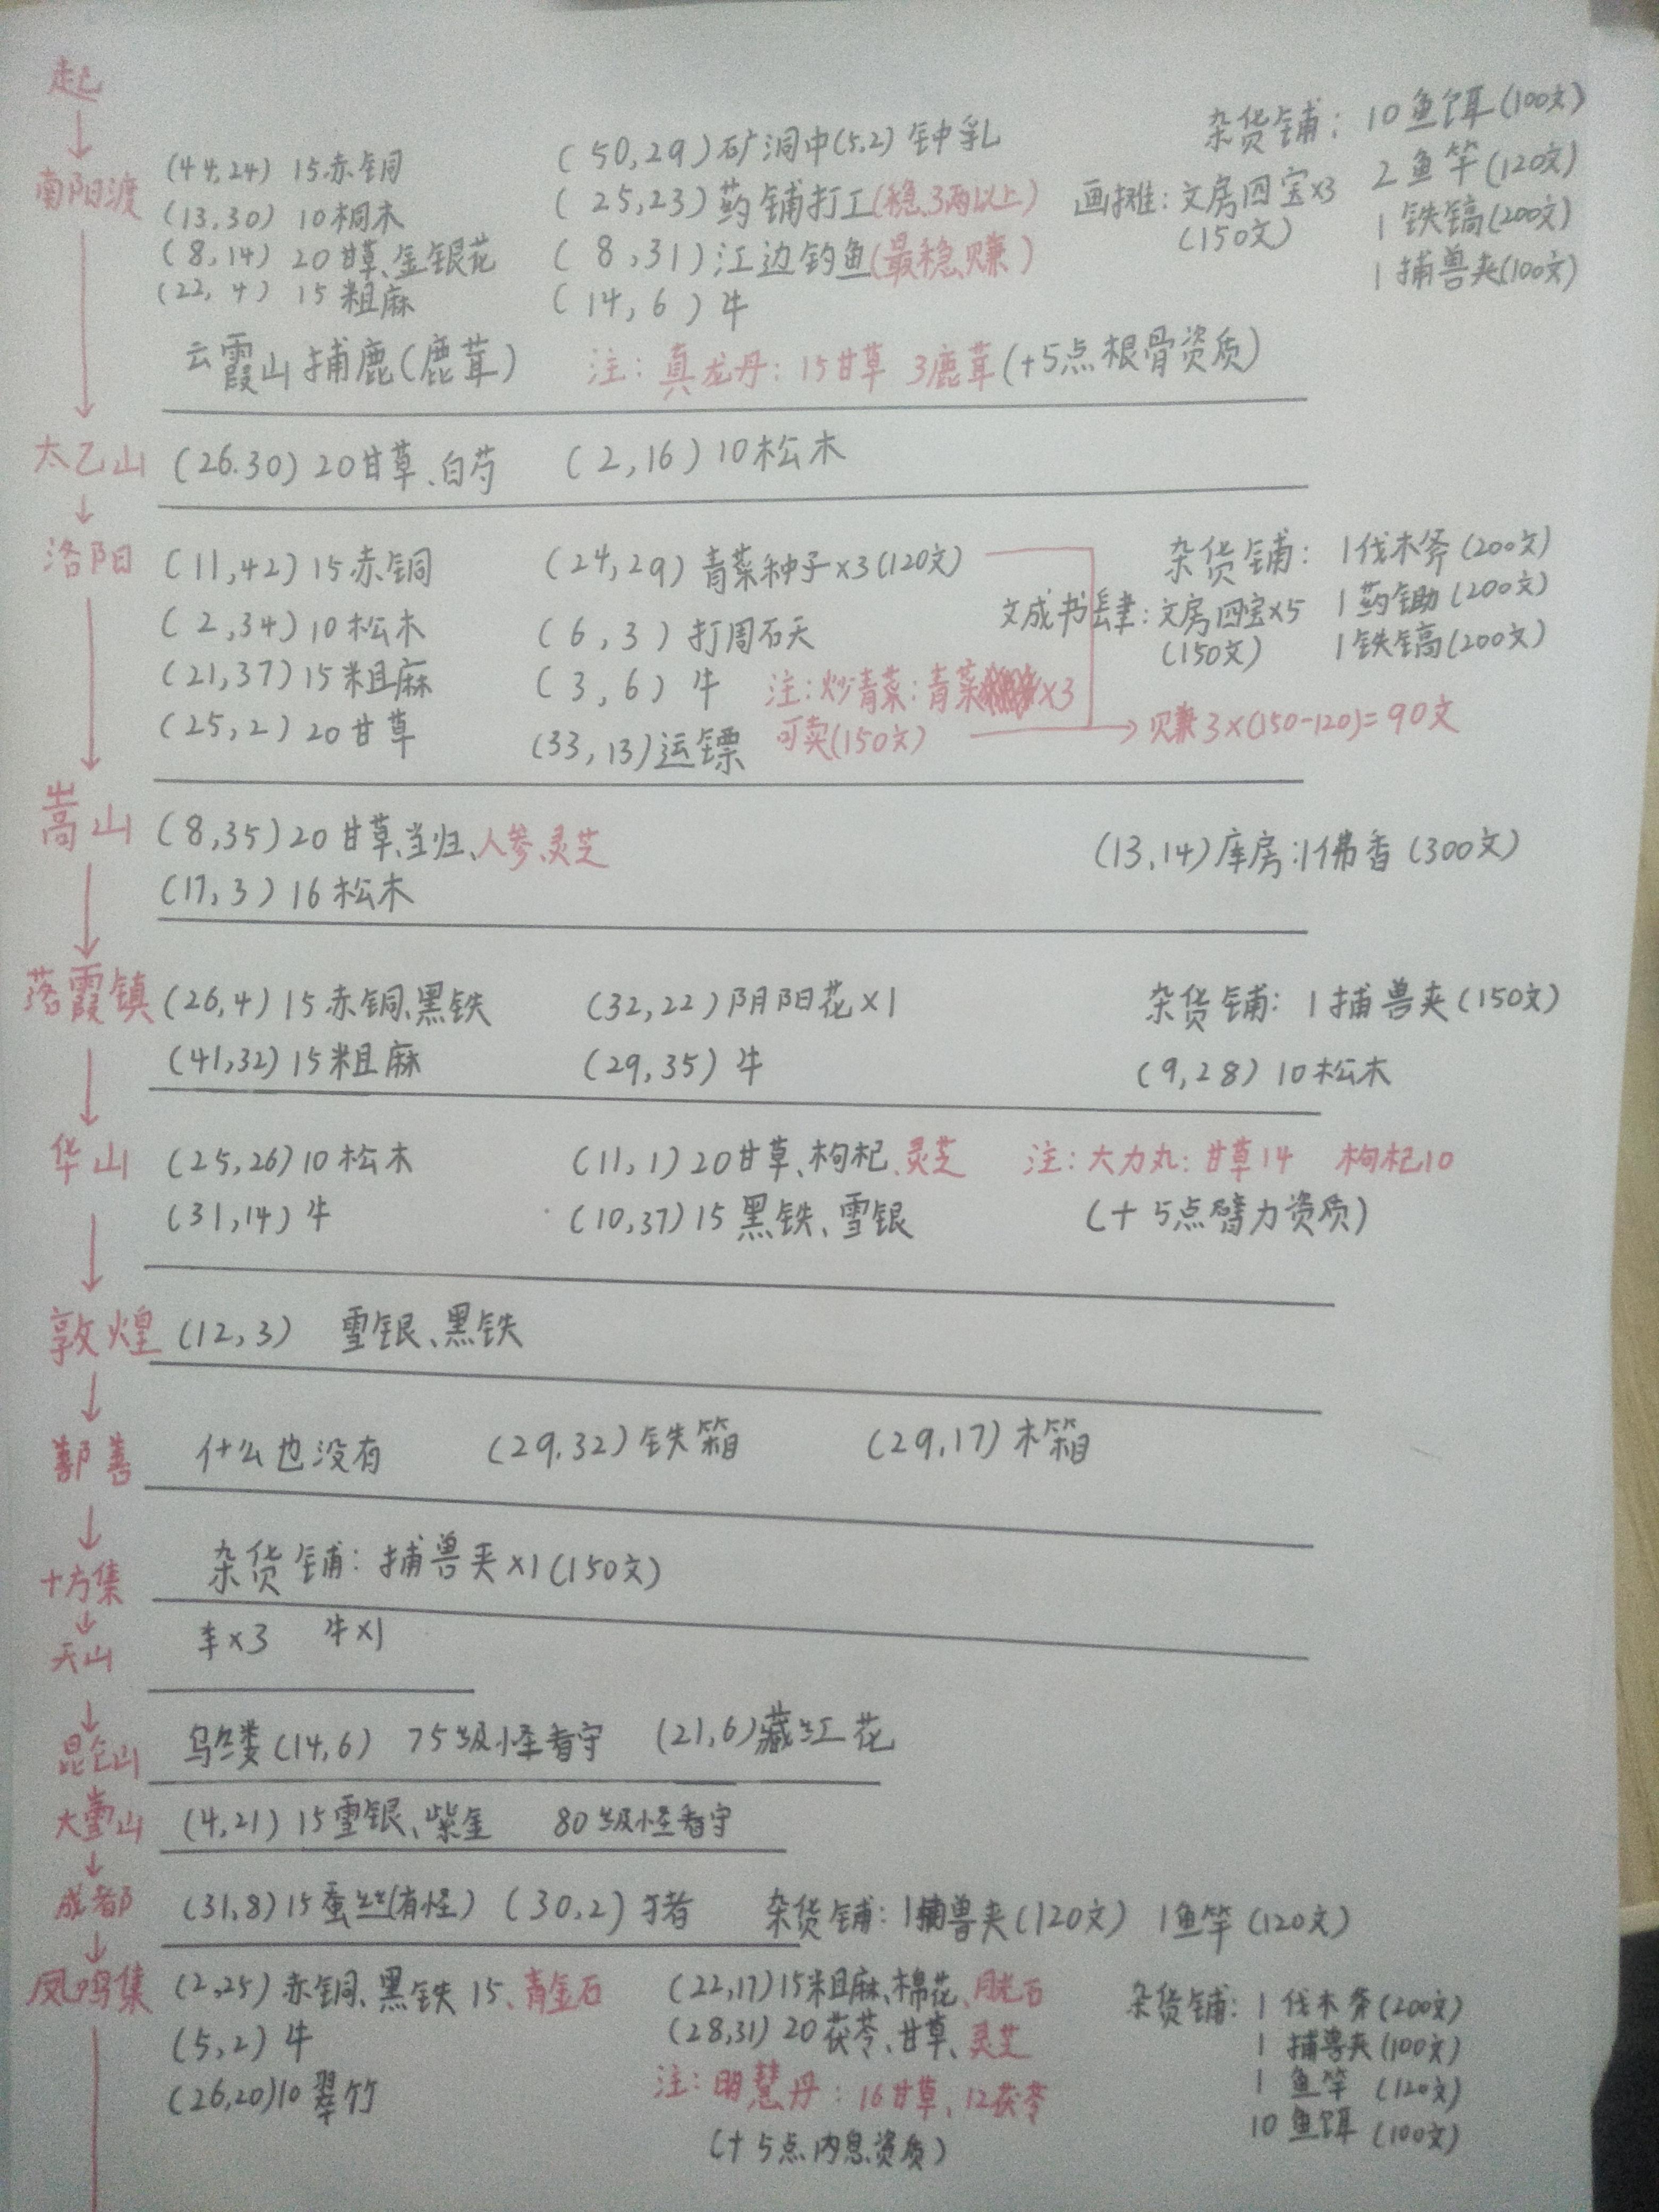 起
南阳渡
(44,24) 15赤铜
(13,30) 10桐木
(8,14) 20甘草、金银花
(22,4) 15粗麻
(50,29)矿洞中(5,2)钟乳
(25,23)药铺打工(稳3两以上)
(8,31)江边钓鱼(最稳赚)
(14,6)牛
画摊:文房四宝×3
(150文)
杂货铺:10鱼饵(100文)
2鱼竿(120文)
1铁镐(200文)
1捕兽夹(100文)
云霞山捕鹿(鹿茸)
注:真龙丹:15甘草 3鹿茸(+5点根骨资质)
太乙山
(26.30)20甘草、白芍
(2,16)10松木
洛阳
(11,42)15赤铜
(2,34)10松木
(21,37)15粗麻
(25,2)20甘草
(24,29)青菜种子×3(120文)
(6,3)打周石天
(3,6)牛
(33,13)运镖
杂货铺:1伐木斧(200文)
1药锄(200文)
1铁镐(200文)
文成书肆:文房四宝×5
(150文)
注:炒青菜:青菜×3
可卖(150文)
赚3×(150-120)=90文
嵩山
(8,35)20甘草、当归、人参、灵芝
(17,3)16松木
(13,14)库房:1佛香(300文)
落霞镇
(26,4)15赤铜、黑铁
(41,32)15粗麻
(32,22)阴阳花×1
(29,35)牛
杂货铺:1捕兽夹(150文)
(9,28)10松木
华山
(25,26)10松木
(31,14)牛
(11,1)20甘草、枸杞、灵芝
(10,37)15黑铁、雪银
注:大力丸:甘草14 枸杞10
(+5点臂力资质)
敦煌
(12,3) 雪银、黑铁
鄯善
什么也没有 (29,32)铁箱 (29,17)木箱
十方集
杂货铺:捕兽夹×1(150文)
天山
羊×3 牛×1
昆仑山
乌缕(14,6) 75级怪看守 (21,6)藏红花
大雪山
(4,21)15雪银、紫金 80级怪看守
成都
(31,8)15蚕丝(有怪) (30,2)猪 杂货铺:1捕兽夹(120文) 1鱼竿(120文)
凤鸣集
(2,25)赤铜、黑铁15、青金石
(5,2)牛
(26,20)10翠竹
(22,17)15粗麻、棉花、月光石
(28,31)20茯苓、甘草、灵芝
注:明慧丹:16甘草、12茯苓
(+5点内息资质)
杂货铺:1伐木斧(200文)
1捕兽夹(100文)
1鱼竿(120文)
10鱼饵(100文)